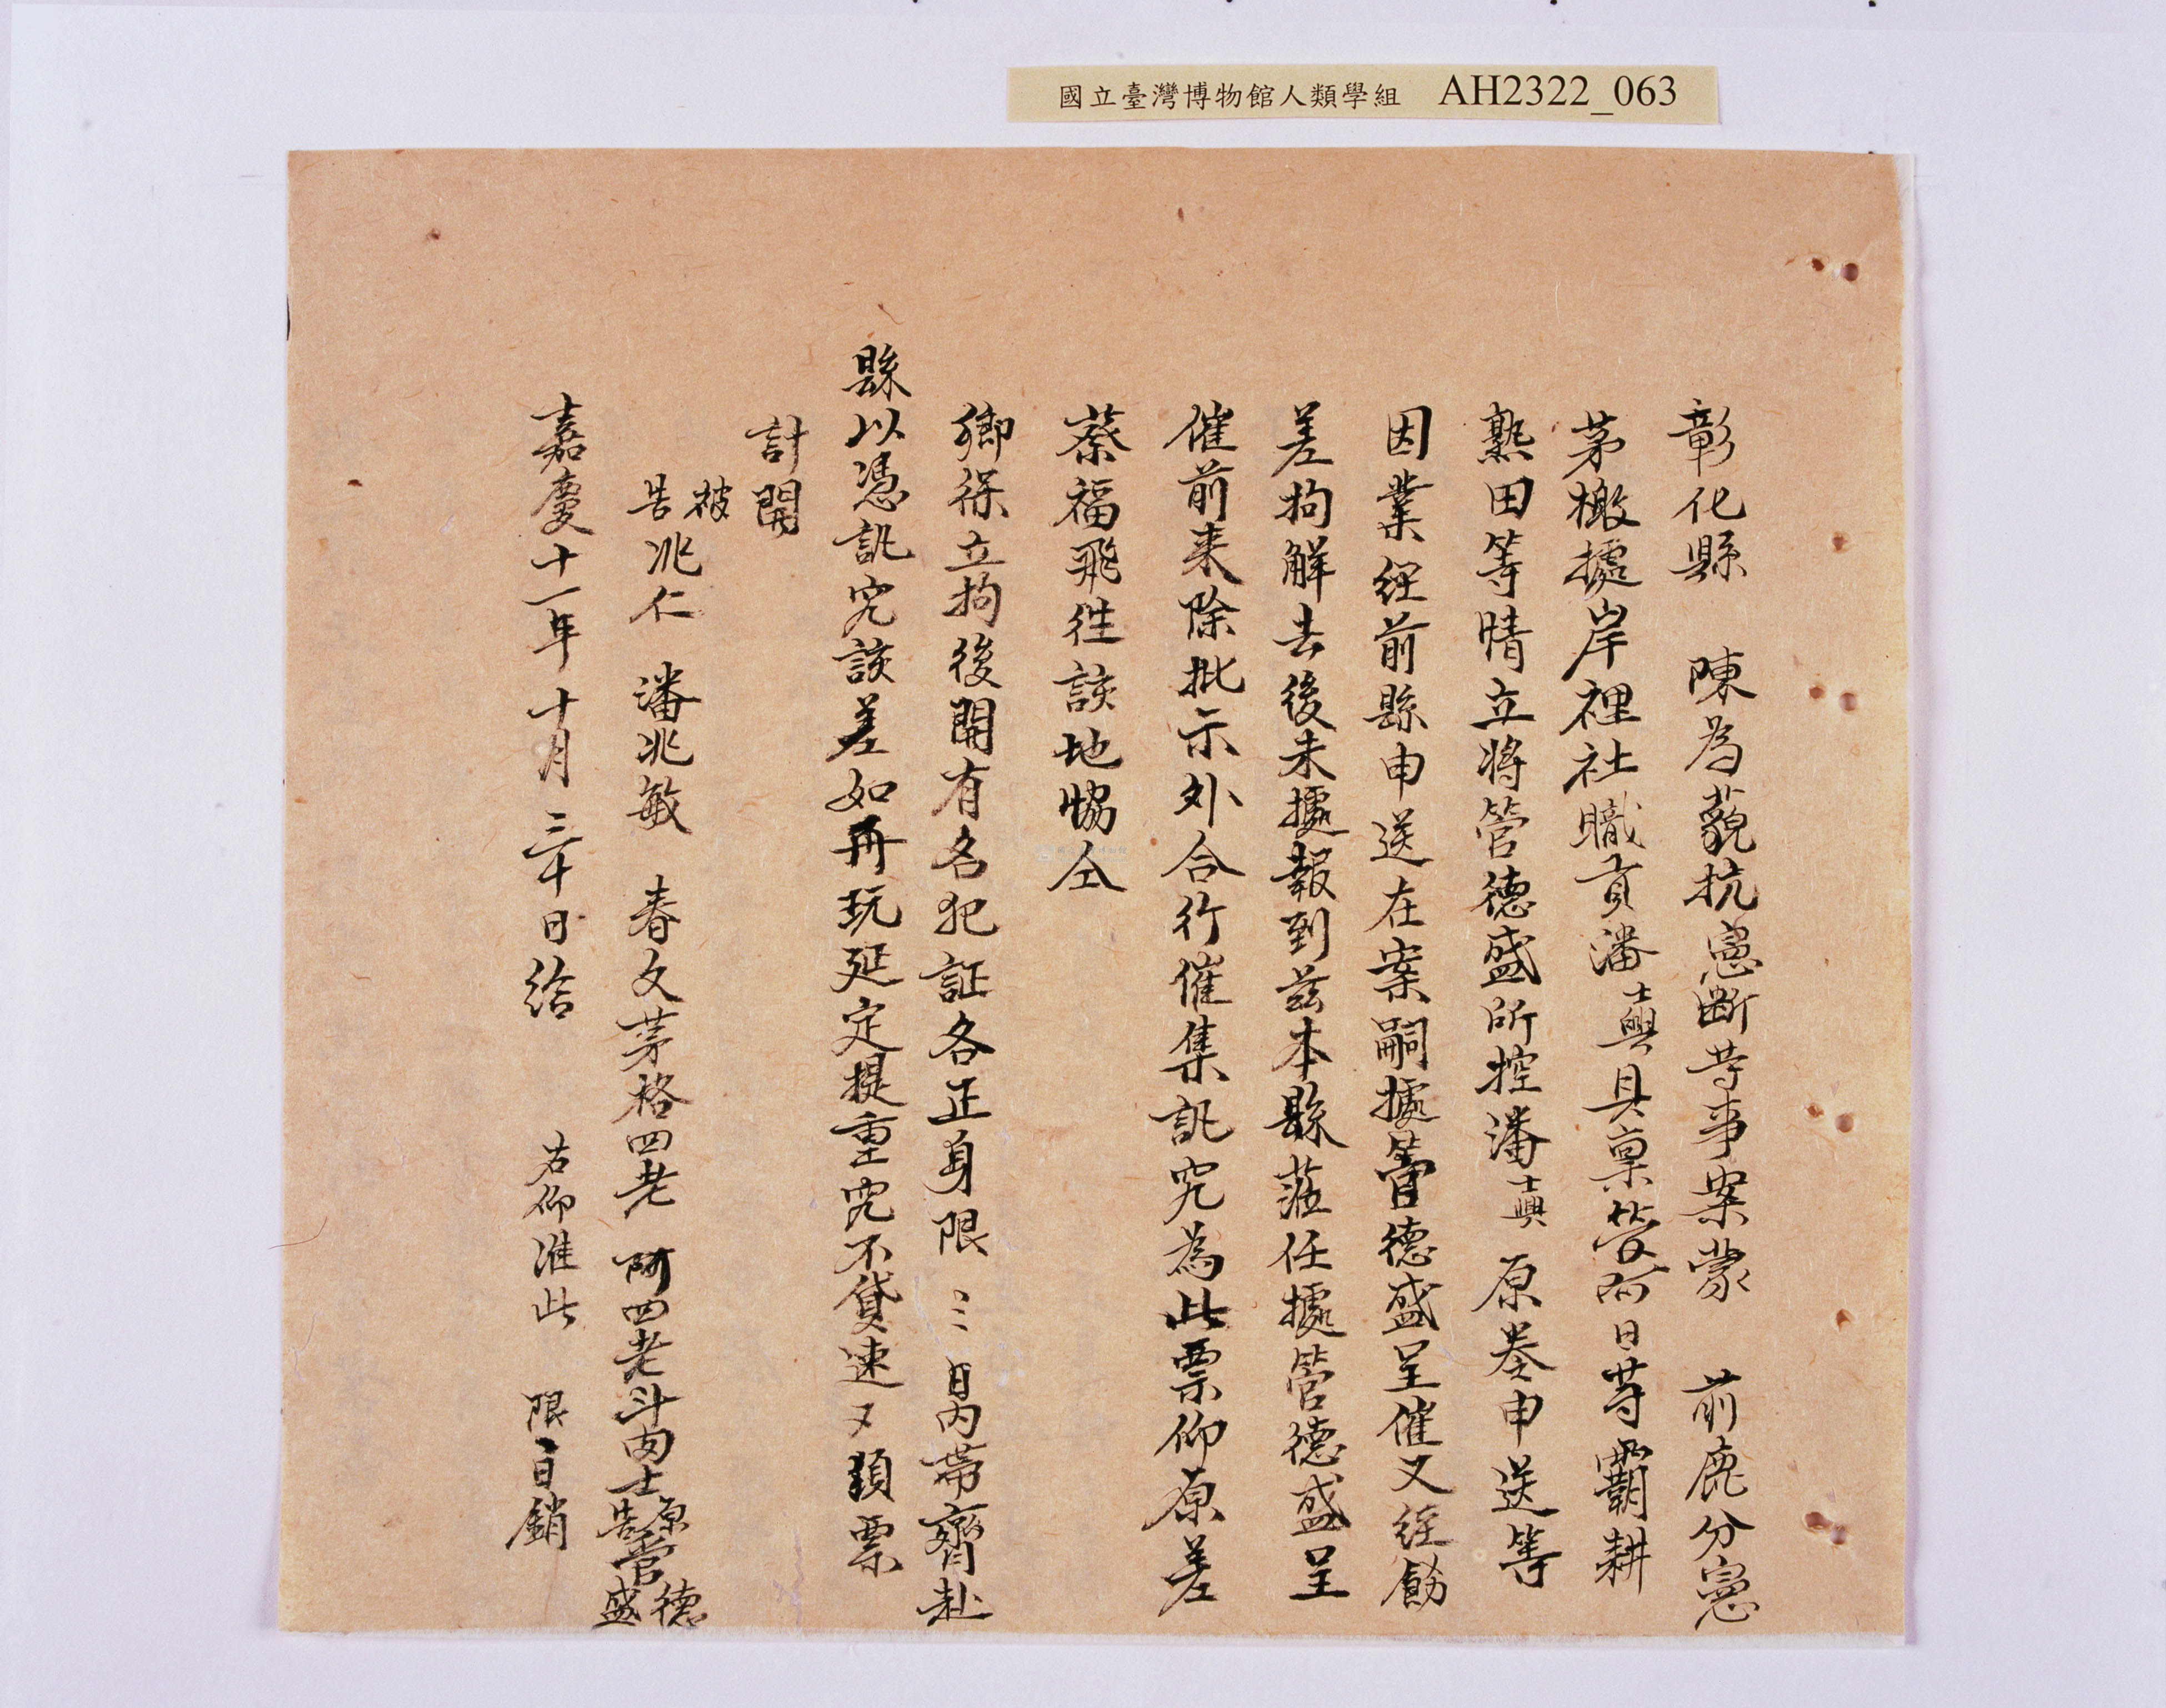 國立臺灣博物館人類學組 AH2322_063
彰化縣 陳為藐抗憲断等事案蒙 前鹿分憲
茅檄據岸裡社職貢潘士興具稟管阿日等霸耕
熟田等情立將管德盛所控潘士興原卷申送等
因業經前縣申送在案嗣據管德盛呈催又經飭
差拘解去後未據報到茲本縣蒞任據管德盛呈
催前来除批示外合行催集訊究為此票仰原差
蔡福飛徃該地協仝
鄉保立拘後開有名犯証各正身限三日內帯齊赴
縣以憑訊究該差如再玩延定提重究不貸速又頚票
計開
被告 兆仁 潘兆敏 春文茅格四老 阿四老斗肉士 原告管德盛
嘉慶十一年十月三十日給 右仰准此 限日銷